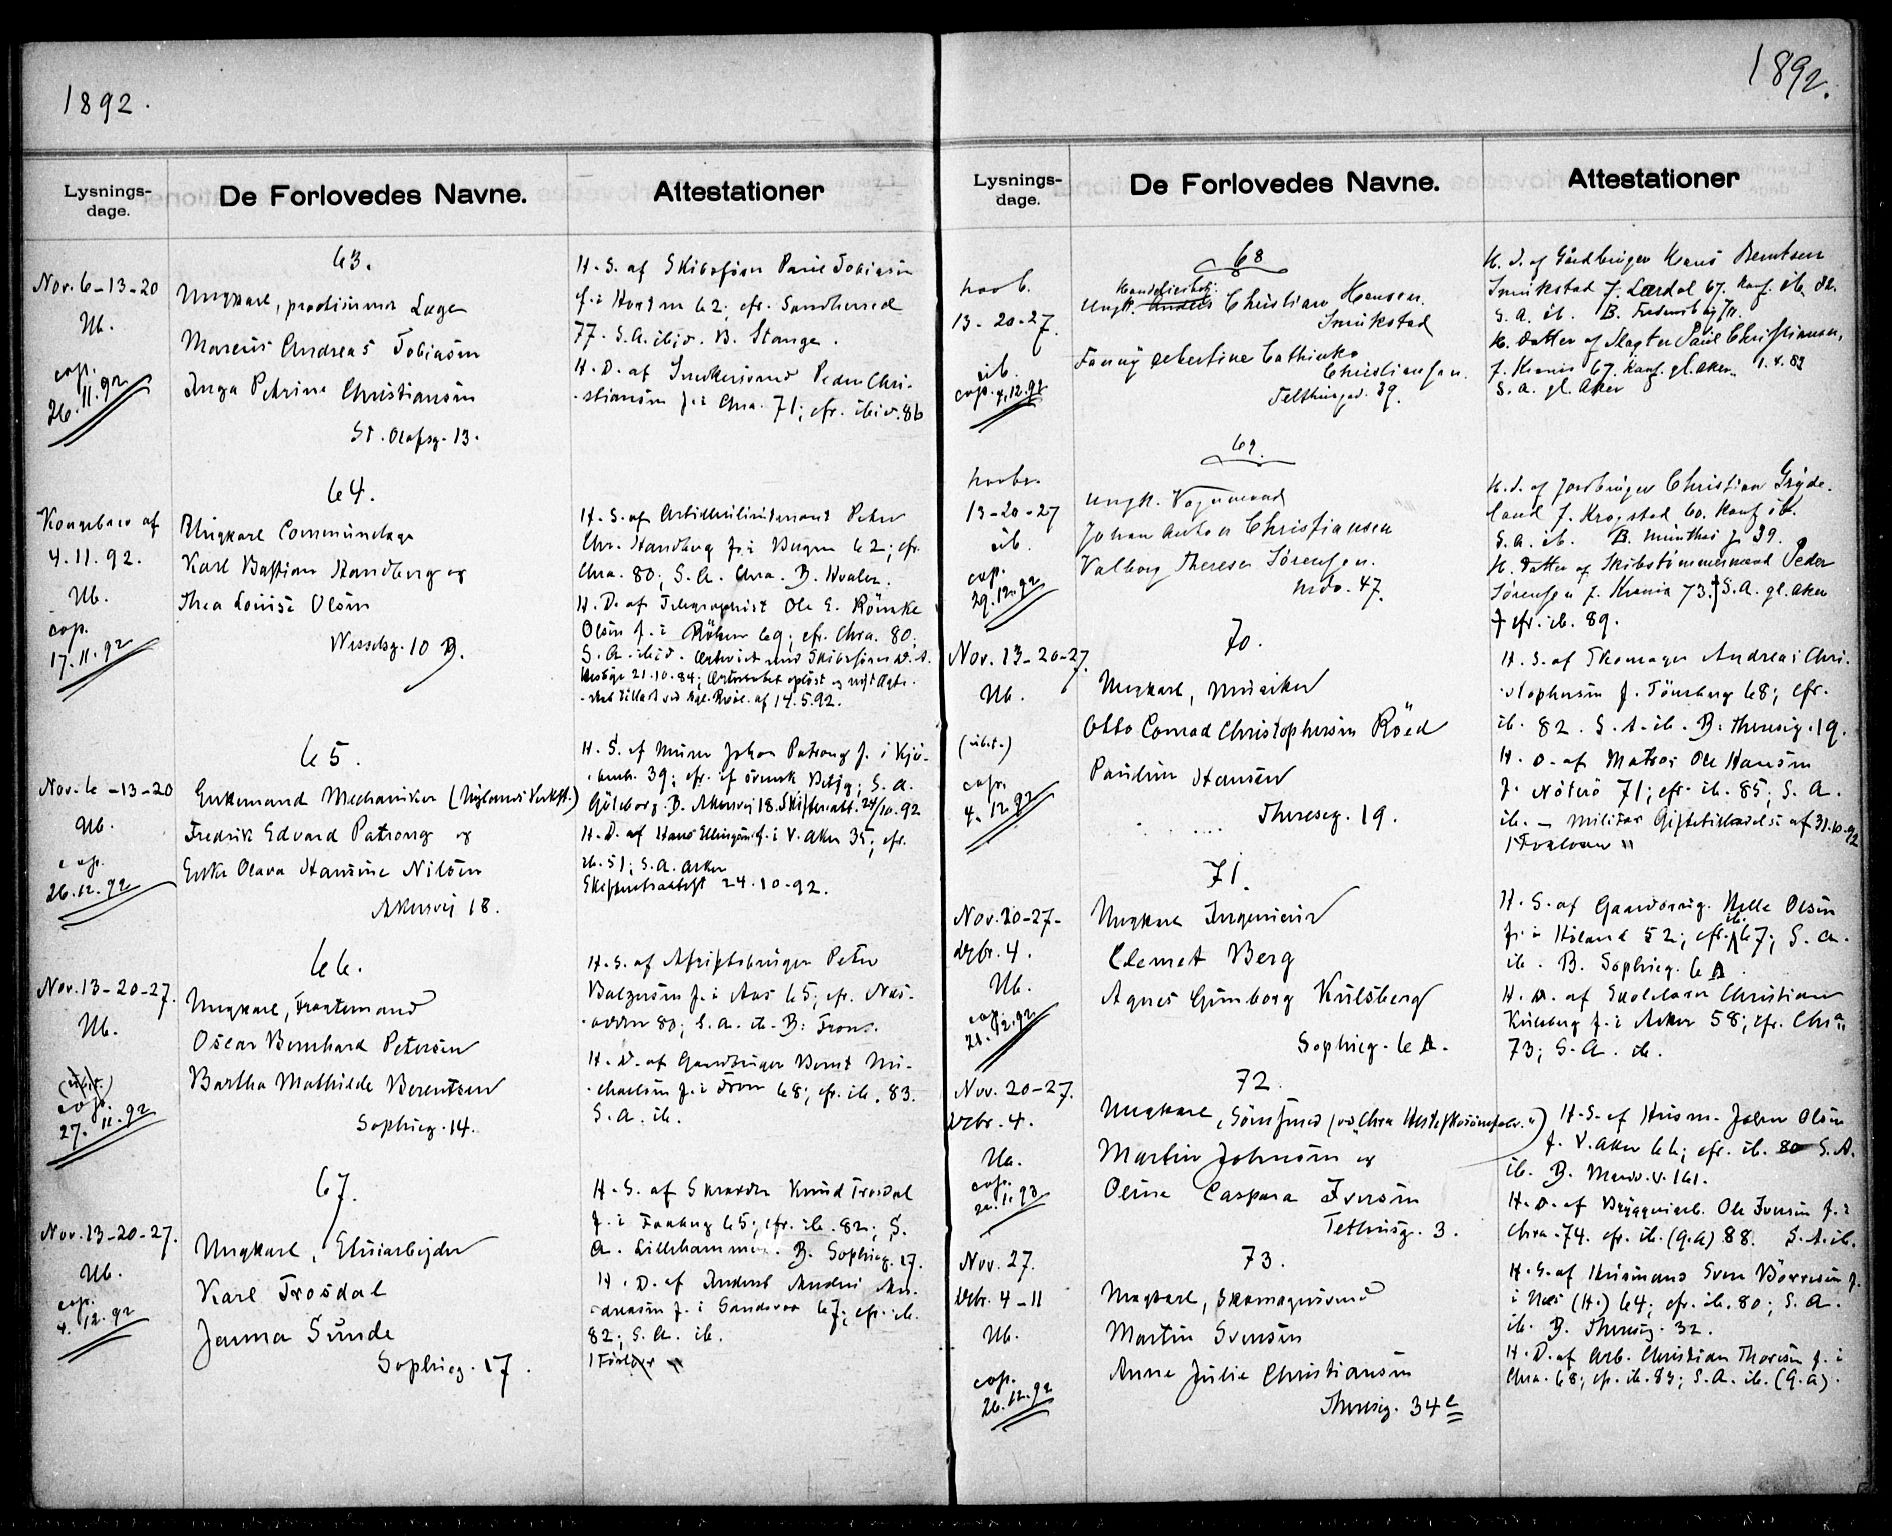 1892.
Lysnings-
dage.
De Forlovedes Navne.
Attestationer
63.
Nov. 6-13-20
Ub.
cop.
26.11.92
Ungkarl, practiserende Læge
Marcus Andreas Tobiasen
Inga Petrine Christiansen
St. Olafsg. 13.
H. S. af Skibsfører Paul Tobiasen
f. i 62; cfr. Sandherred
77. S.A. ibid. B. Stange.
H. D. af Peder Chri-
stiansen f. i Chra. 71; cfr. ibid. 86
64.
Kongebrev af
4.11.92.
Ub.
cop.
17.11.92
Ungkarl Communelæge
Karl Bastian Strandberg og
Thea Louise Olsen
Wesselsg. 10 B.
H. S. af Artillerilieutenant Peter
Chr. Strandberg f. i Bergen 62; cfr.
Chra. 80; S. A. Chra. B. Hvaler.
H. D. af Telegraphist Ole E.
Olsen f. i 69; cfr. Chra. 80.
S. A. ibid. Ægteviet med Skibsfører
21.10.84; Ægteskabet opløst og nyt Ægte-
skab tilladt ved Kgl. Resol. af 14.5.92.
65.
Nov. 6-13-20
Ub.
cop.
26.12.92
Enkemand Mechaniker (Nylands Verkst.)
Fredrik Edvard Patrong og
Enke Olava Hansine Nilsen
Akersvej 18.
H. S. af Murer Johan Patrong f. i Kjö-
benh. 39; cfr. af svensk S. A.
Göteborg. B. Akersvej 18. Skifteratt. 24/10.92
H. D. af Hans Ellingsen f. i V. Aker 35; cfr.
ib. 51; S. A. Aker
Skifteretsattest 24.10.92.
66.
Nov. 13-20-27.
Ub.
(ubet.)
cop.
27.11.92
Ungkarl,
Oscar Bernhard Petersen
Bertha Mathilde Berentsen
Sophieg. 14.
H. S. af Peter
f. i Aas 65; cfr. Nes-
odden 80; S. A. ib. B:
H. D. af Gaardbruger Bernt Mi-
chaelsen f. i 68; cfr. ib. 83.
S. A. ib.
67.
Nov. 13-20-27.
Ub.
cop.
4.12.92
Ungkarl,
Karl Trosdal
Janna Sunde
Sophieg. 17.
H. S. af Skrædder Knud Trosdal
f. i Faaberg 65; cfr. ib. 82; S.
A. Lillehammer. B. Sophieg. 17.
H. D. af
f. i 67; cfr. ib.
82; S. A. ib.
1892.
Lysnings-
dage.
De Forlovedes Navne.
Attestationer
68
Novb.
13-20-27.
ib.
cop. 4.12.92
Handelsbetj.
Ungk. Anders Christian Hansen
Smukstad
Fanny Albertine Cathinka
Christiansen.
Telthusgad. 39.
H. S. af Gårdbruger Hans Berntsen
Smukstad f. Lærdal 67. Konf. ib.
S. A. ib. B.
H. Datter af Slagter Paul Christiansen,
f. Krania 67. Konf. gl. aker. 1.4.83
S. A. gl. Aker
69.
Novbr.
13-20-27
ib.
cop.
29.12.92
Ungk. Vognmand
Johan Anton Christiansen
Valborg Therese Sørensen.
47.
H. S. af Jordbruger Christian Gryde-
land f. Krogstad 60. Konf ib.
S. A. ib. B. Munthesg 39.
H. Datter af Skibstømmermand Peder
Sørensen f. Krania 73. S.A. gl. aker
cfr. ib. 89.
70.
Nov. 13-20-27.
Ub.
(ubet.)
cop.
4.12.92
Ungkarl, Musiker
Otto Conrad Christophersen Röed
Pauline Hansen
Thereseg. 19.
H. S. af Skomager Andreas Chri-
stophersen f. Tönsberg 68; cfr.
ib. 82. S. A. ib. B: Thereseg. 19.
H. D. af Matros Ole Hansen
f. Nöterö 71; cfr. ib. 85; S. A.
ib. - Militær Giftetilladelse af 31.10.92
1 Forlover
71.
Nov. 20-27-
Decbr. 4.
Ub.
cop.
21.12.92
Ungkarl Ingeniør
Clemet Berg
Agnes Gunborg Kulsberg
Sophieg. 6 A.
H. S. af Helle Olsen
f. i Höland 52; cfr. ib. 67; S. A.
ib. B. Sophieg. 6 A.
H. D. af Skolelærer Christian
Kulsberg f. i Asker 58; cfr. Chra
73; S. A. ib.
72.
Nov. 20-27.
Decbr. 4.
Ub.
cop.
Ungkarl, (ved Chra Hesteskosömfabr.)
Martin Johnsen og
Oline Caspara Iversen
Telthusg. 3.
H. S. af Husm. Johan Olsen
f. V. Aker 66; cfr. ib. 80 S. A.
ib. B. 161.
H. D. af Bryggeriarb. Ole Iversen f. i
Chra. 74. cfr. ib. (g. a) 88. S. A. ib.
73.
Nov. 27.
Decbr. 4-11
Ub.
cop.
26.12.92
Ungkarl, Skomagersvend
Martin Svensen
Anne Julie Christiansen
Thereseg. 34 c
H. S. af Husmand Sven Börresen f.
i Næs (H.) 64; cfr. ib. 80; S. A.
ib. B. Thereseg. 32.
H. D. af Arb. Christian Thoresen f. i
Chra. 68; cfr. ib. 83; S. A. ib. (g. a).